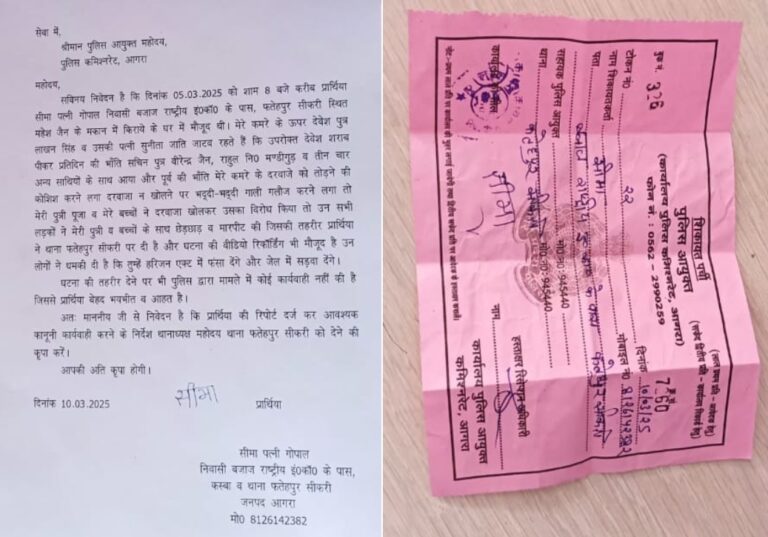 सेवा में,
श्रीमान पुलिस आयुक्त महोदय,
पुलिस कमिश्नरेट, आगरा
महोदय,
सविनय निवेदन है कि दिनांक 05.03.2025 को शाम 8 बजे करीब प्रार्थिया
सीमा पत्नी गोपाल निवासी बजाज राष्ट्रीय इं०कॉ० के पास, फतेहपुर सीकरी स्थित
महेश जैन के मकान में किराये के घर में मौजूद थी। मेरे कमरे के ऊपर देवेश पुत्र
लाखन सिंह व उसकी पत्नी सुनीता जाति जाटव रहते हैं कि उपरोक्त देवेश शराब
पीकर प्रतिदिन की भाँति सचिन पुत्र वीरेन्द्र जैन, राहुल नि० मण्डीगुड़ व तीन चार
अन्य साथियों के साथ आया और पूर्व की भाँति मेरे कमरे के दरवाजे को तोड़ने की
कोशिश करने लगा दरवाजा न खोलने पर भद्दी-भद्दी गाली गलौज करने लगा तो
मेरी पुत्री पूजा व मेरे बच्चों ने दरवाजा खोलकर उसका विरोध किया तो उन सभी
लड़कों ने मेरी पुत्री व बच्चों के साथ छेड़छाड़ व मारपीट की जिसकी तहरीर प्रार्थिया
ने थाना फतेहपुर सीकरी पर दी है और घटना की वीडियो रिकॉर्डिंग भी मौजूद है उन
लोगों ने धमकी दी है कि तुम्हें हरिजन एक्ट में फंसा देंगे और जेल में सड़वा देंगे।
घटना की तहरीर देने पर भी पुलिस द्वारा मामले में कोई कार्यवाही नहीं की है
जिससे प्रार्थिया बेहद भयभीत व आहत है।
अतः माननीय जी से निवेदन है कि प्रार्थिया की रिपोर्ट दर्ज कर आवश्यक
कानूनी कार्यवाही करने के निर्देश थानाध्यक्ष महोदय थाना फतेहपुर सीकरी को देने की
कृपा करें।
आपकी अति कृपा होगी।
दिनांक 10.03.2025 सीमा प्रार्थिया
सीमा पत्नी गोपाल
निवासी बजाज राष्ट्रीय इं०कॉ० के पास,
कस्बा व थाना फतेहपुर सीकरी
जनपद आगरा
मो० 8126142382
शिकायत पर्ची
पुलिस आयुक्त
(कार्यालय पुलिस कमिश्नरेट, आगरा)
फोन नं. : 0562 - 2990259
बुक नं. 376
क्र.सं. 7560
टोकन नं० 22
दिनांक 10/03/25
नाम शिकायतकर्ता सीमा
मोबाइल नं० 8126142382
पता बजाज राष्ट्रीय इ० का० के पास फतेहपुर सीकरी
सहायक पुलिस आयुक्त
सी०यू०जी०नं०:945440
थाना फतेहपुर सीकरी
सी०यू०जी०नं०:945440
नाम
सीमा
हस्ताक्षर रिसेप्शन अधिकारी
कार्यालय पुलिस आयुक्त
कमिश्नरेट, आगरा